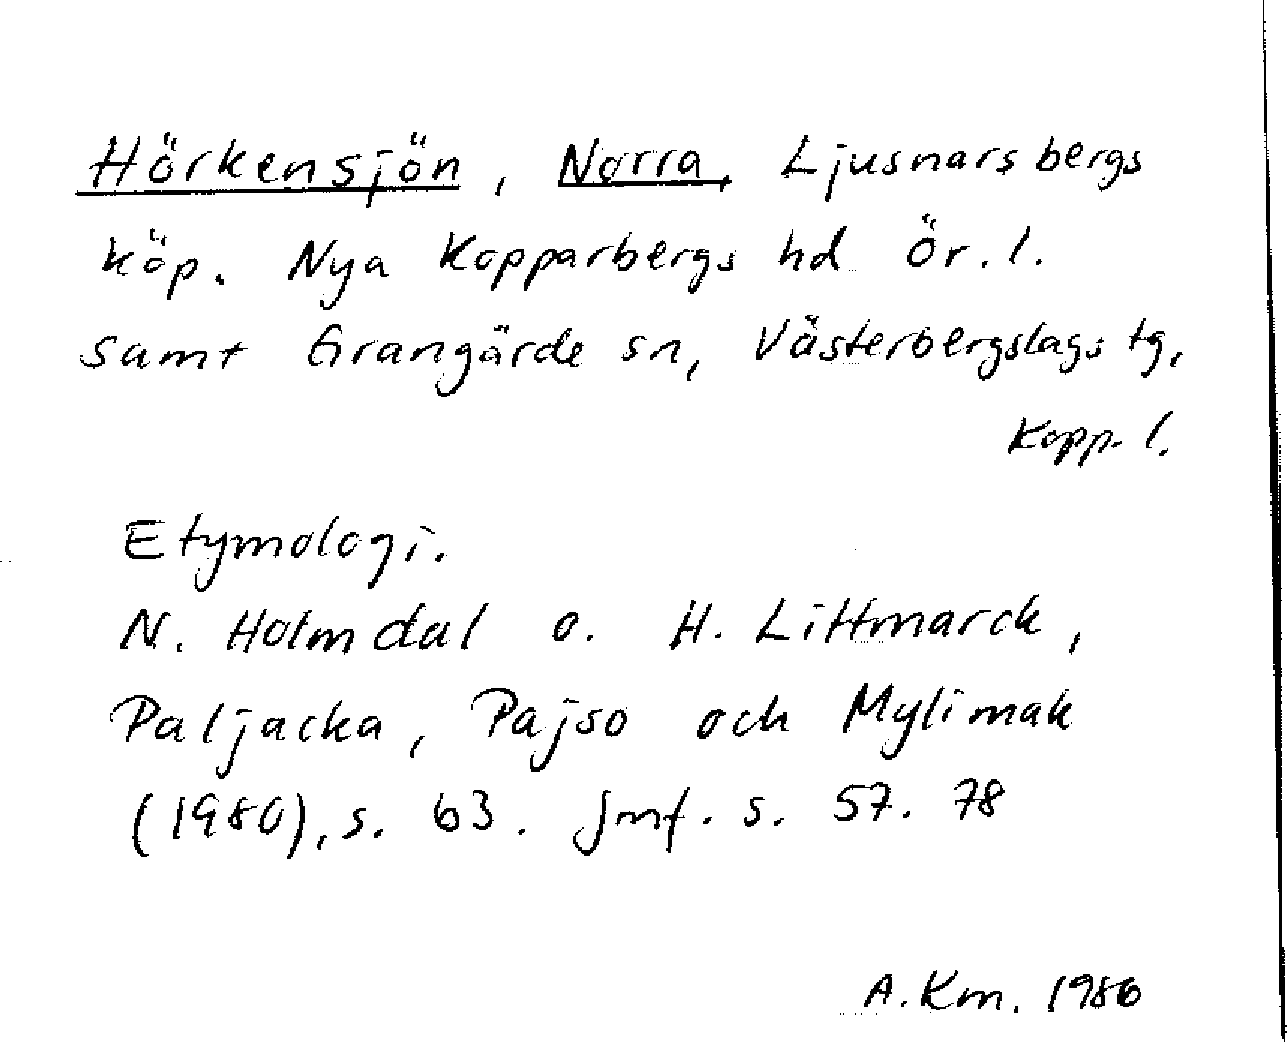 Hörkensjön, Norra, Ljusnarsbergs
köp. Nya Kopparbergs hd Ör. l.
samt Grangärde sn, Västerbergslags tg,
Kopp. l.
Etymologi.
N. Holmdal o. H. Littmarck,
Paljacka, Pajso och Mylimak
(1980), s. 63. Jmf. s. 57. 78
A. Km. 1986